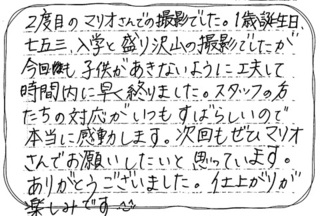 2度目のマリオさんでの撮影でした。1歳誕生日、
七五三、入学と盛り沢山の撮影でしたが
今回も子供があきないように工夫して
時間内に早く終りました。スタッフの方
たちの対応がいつもすばらしいので
本当に感動します。次回もぜひマリオ
さんでお願いしたいと思っています。
ありがとうございました。仕上がりが
楽しみです